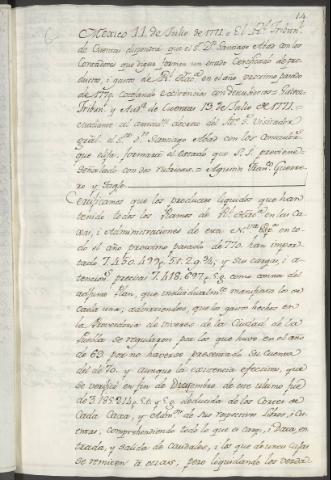 14
Mexico 11 de Julio de 1771. El Rl. Tribunl.
de Cuentas dispondrá que el Sr. Dn. Santiago Abad con los
Contadores que elija formen un estado Certificado de pro-
ductos, i gastos de Rl. Hacda. en el año proximo pasado
de 1770
Tribunl. y Auda. de Cuentas 13 de Julio de 1771.
el Sor. Dn. Santiago Abad con los
que elija, formará el Estado que S.S. previene
señalado con dos rubricas. Agustin Franco. Guerre-
ro y Tagle
Certificamos que los productos liquidos que han
tenido todos los Ramos de Rl. Hacda. en las Ca-
xas, i Administraciones de esta Nva. Espa. en to-
do el año proximo pasado de 770 han impor-
tado 7.450.499 p. 5 t. 2 g. y sus cargas, i a-
tenciones precisas 7.418.697 p. 5 g. como consta del
adjunto Plan, que individualmte. manifiesta lo se-
cada una; advirtiendose, que los gastos hechos en
la Proveduria de viveres de la Ciudad de la
Puebla se regularon por los que huvo en el año
de 69 por no haverse presentado su Cuenta
del de 70. y aunque la existencia efectiva, que
se verificó en fin de Diziembre de este ultimo fué
de 3.185.214 p. 5 t. y 5 g. deducida de los Cortes de
Cada Caxa, y Admon. de sus respectivos Libros, i Cu-
entas, comprehendiendo todo lo que es cargo, i Data, en-
trada, y salida de caudales, i los que de unas Cajas
se remiten á otras, pero liquidando los verda-